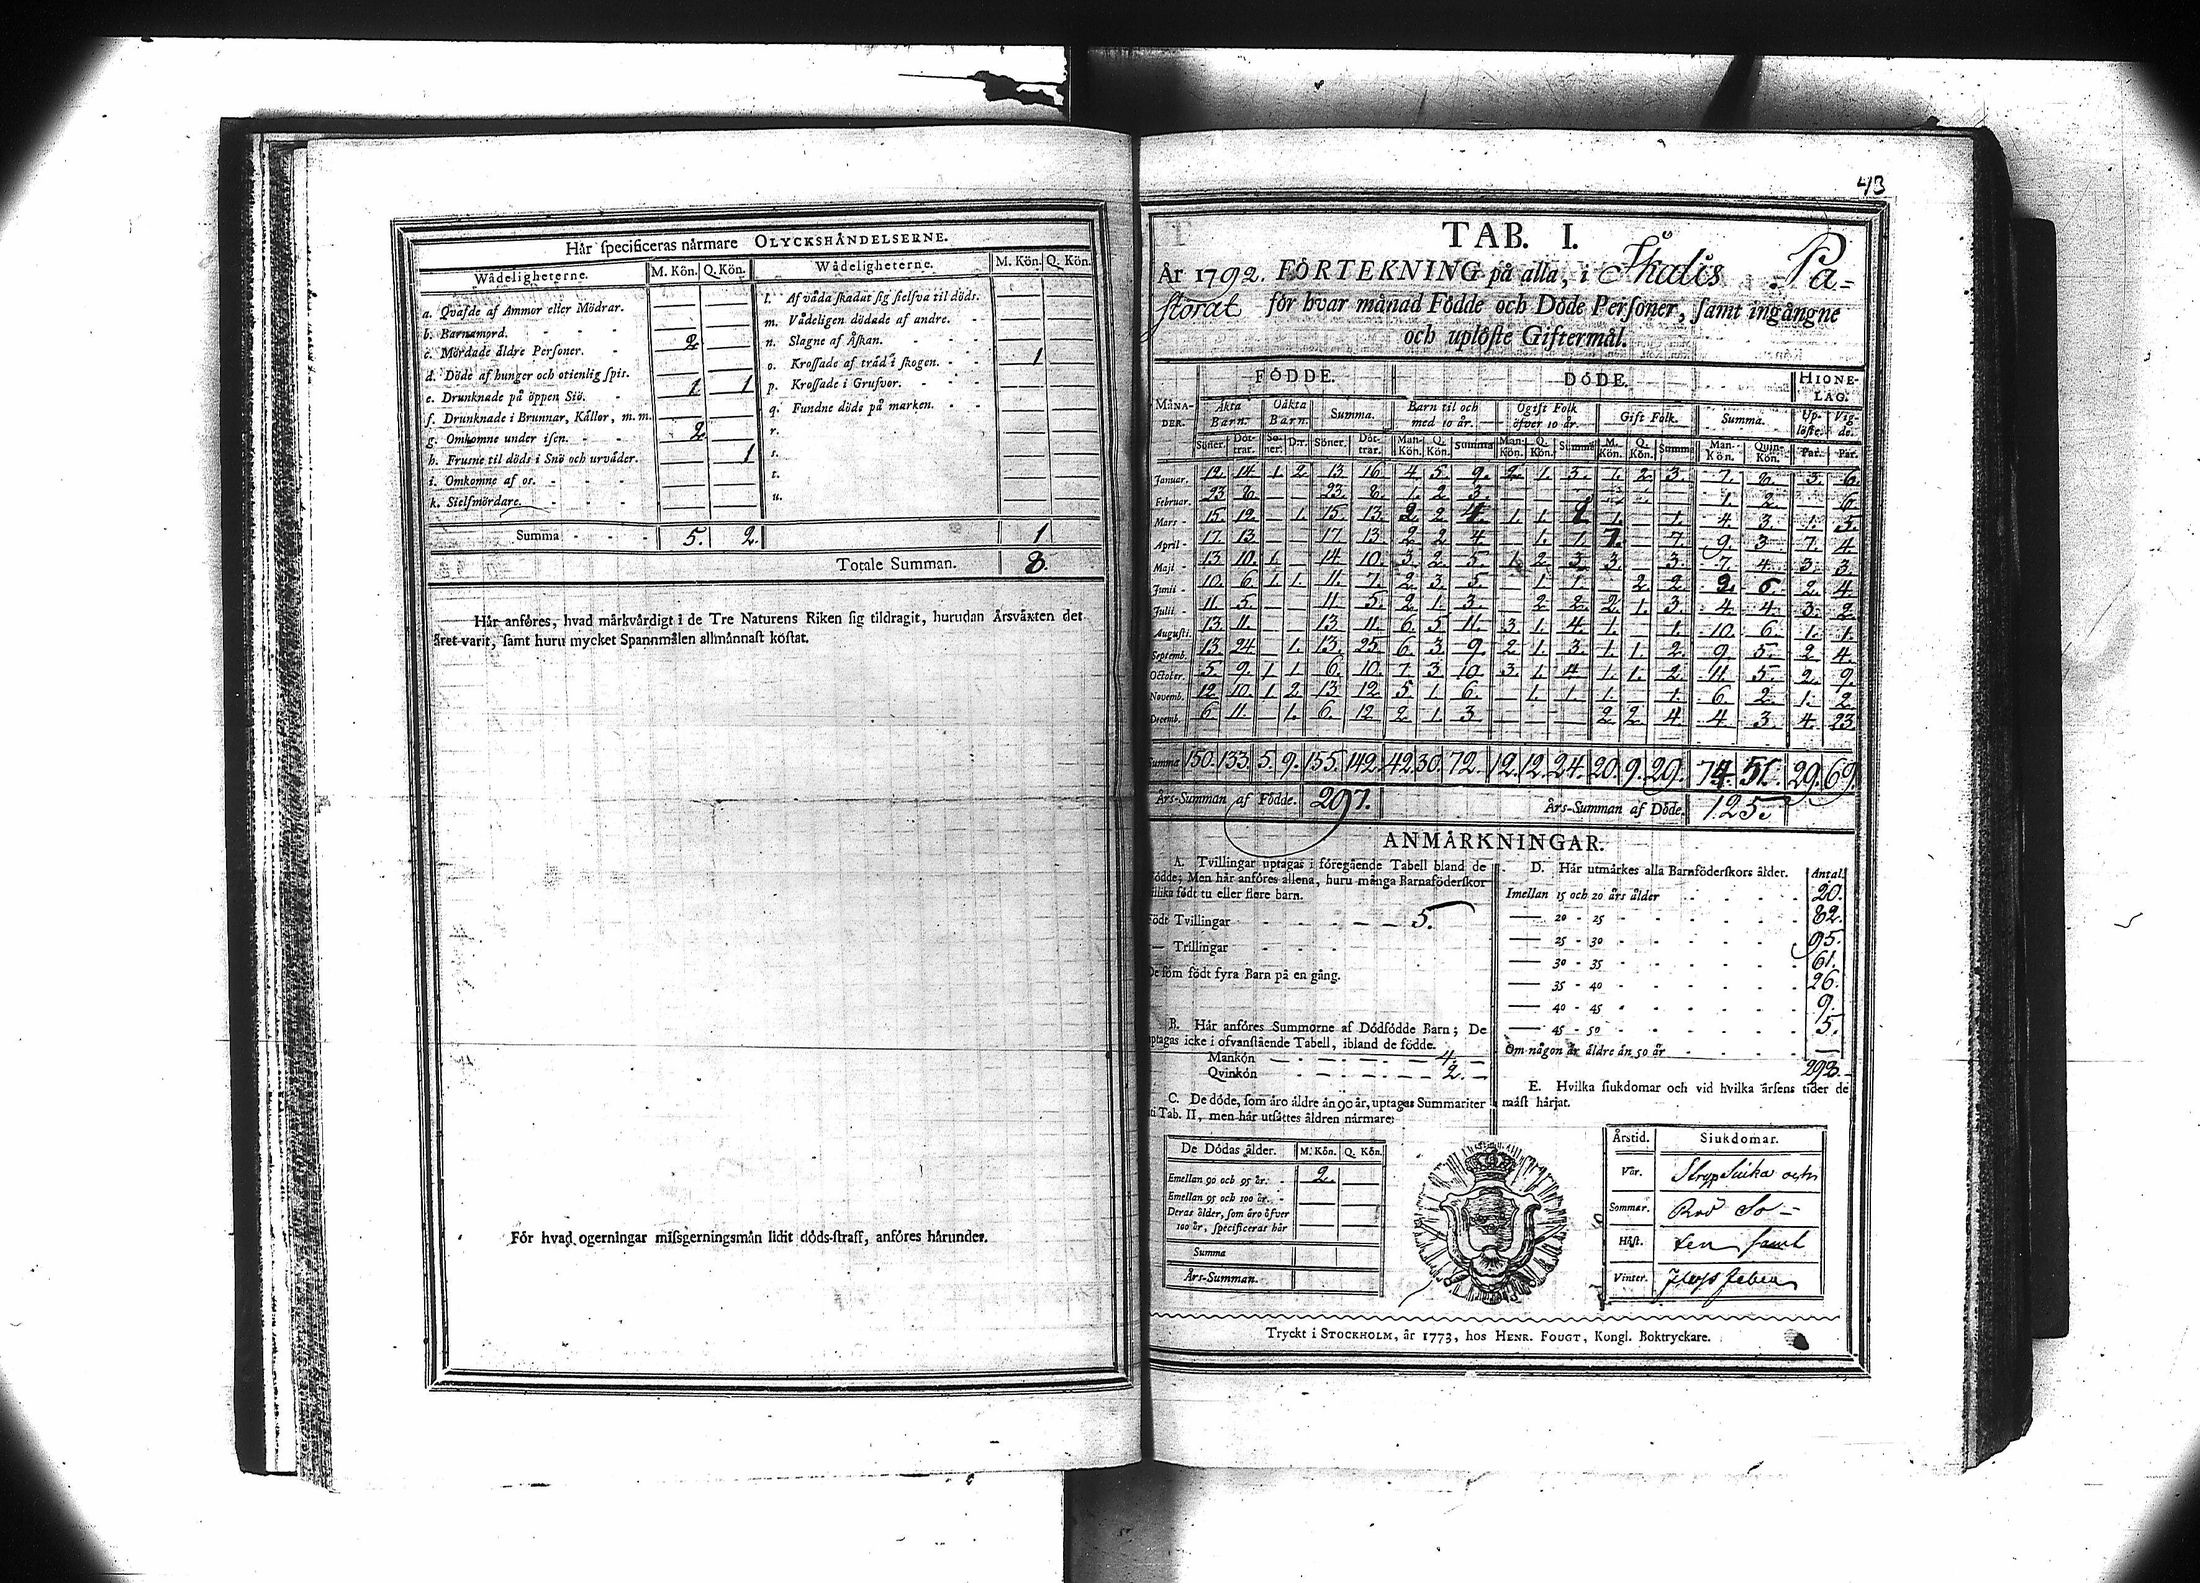 Hår specificeras nårmare OLYCKSHÅNDELSERNE.
Wådeligheterne. M. Kön. Q. Kön. Wådeligheterne. M. Kön. Q. Kön.
a. Qvafde af Ammor eller Mödrar.
b. Barnamord.
c. Mördade åldre Personer. 2
d. Döde af hunger och otienlig spis.
e. Drunknade på öppen Siö. 1 1
f. Drunknade i Brunnar, Kållor, m. m.
g. Omkomne under isen. 2
h. Frusne til döds i Snö och urvåder. 1
i. Omkomne af os.
k. Sielfmördare.
l. Af våda skadat sig sielfva til döds.
m. Vådeligen dödade af andre.
n. Slagne af Åskan.
o. Krossade af tråd i skogen. 1
p. Krossade i Grufvor.
q. Fundne döde på marken.
r.
s.
t.
u.
Summa 5. 2. 1
Totale Summan. 8.
Hår anföres, hvad mårkvårdigt i de Tre Naturens Riken sig tildragit, hurudan Årsvåxten det
året varit, samt huru mycket Spannmålen allmånnast kostat.
För hvad ogerningar missgerningsmån lidit döds-straff, anföres hårunder.
43
TAB. I.
År 1792. FÖRTEKNING på alla, i Skalös Pa=
storat för hvar månad Födde och Döde Personer, samt ingångne
och uplöste Giftermål.
FÖDDE. DÖDE. HIONE-LAG.
MÅNA-DER. Åkta Barn. Oåkta Barn. Summa. Barn til och med 10 år. Ogift Folk öfver 10 år. Gift Folk. Summa. Up-löste. Vig-de.
Söner. Döt-trar. Sö-ner. D:r. Söner. Döt-trar. Man-Kön. Q. Kön. Summa Man-Kön. Q. Kön. Summa M. Kön. Q. Kön. Summa Man-Kön. Quin-Kön. Par. Par.
Januar. 12. 14. 1. 2. 13 16. 4. 5. 9. 2. 1. 3. 1. 2. 3. 7. 8. 3. 6.
Februar. 23 8. 23. 8. 1. 2. 3. 1. 2. 6
Mars 15. 12. 1. 15. 13. 2. 2. 4. 1. 1. 2 1. 1. 4. 3. 1. 5.
April 17. 13 17 13 2. 2. 4 1. 1. 7. 7. 9. 3. 7. 4.
Maji 13 10. 1. 14. 10. 3 2. 5. 1. 2. 3. 3. 3. 7. 4. 3. 3.
Junii 10. 6. 1. 1. 11. 7. 2. 3. 5. 1. 1. 2. 2. 2. 6. 2. 4.
Julii 11. 5. 11. 5. 2. 1. 3. 2. 2. 2. 1. 3. 4. 4. 3. 2.
Augusti. 13. 11. 13. 11. 6. 5. 11. 3. 1. 4. 1. 1. 10. 6. 1. 1.
Septemb. 13. 24. 1. 13. 25. 6. 3. 9. 2. 1. 3. 1. 1. 2. 9. 5. 2. 4.
October. 5. 9. 1. 1. 6. 10. 7. 3. 10. 3. 1. 4. 1. 1. 2. 11. 5. 2. 9.
Novemb. 12. 10. 1. 2. 13. 12. 5. 1. 6. 1. 1. 1. 1. 6. 2. 1. 2.
Decemb. 6. 11. 1. 6. 12. 2. 1. 3 2. 2. 4. 4. 3. 4. 23
Summa 150. 133. 5. 9. 155. 142. 42. 30. 72. 12. 12. 24. 20. 9. 29. 74. 51. 29. 69.
Års-Summan af Födde. 297. Års-Summan af Döde. 125.
ANMÅRKNINGAR.
A. Tvillingar uptagas i föregående Tabell bland de
födde; Men hår anföres allena, huru många Barnaföderskor
hilka födt tu eller flere barn.
Födt Tvillingar 5.
— Trillingar
De som födt fyra Barn på en gång.
B. Hår anföres Summorne af Dödfödde Barn; De
uptagas icke i ofvanstående Tabell, ibland de födde.
Mankön 4.
Qvinkön 2.
C. De döde, som åro åldre ån 90 år, uptagas Summariter
uti Tab. II, men hår utsåttes åldren nårmare:
De Dödas ålder. M. Kön. Q. Kön.
Emellan 90 och 95 år. 2.
Emellan 95 och 100 år.
Deras ålder, som åro öfver
100 år, specificeras hår
Summa
Års-Summan.
D. Hår utmårkes alla Barnföderskors ålder. Antal.
Imellan 15 och 20 års ålder 20.
— 20 - 25 82.
— 25 - 30 95.
— 30 - 35 61.
— 35 - 40 26.
— 40 - 45 9.
— 45 - 50 5.
Om någon år åldre ån 50 år —
298.
E. Hvilka siukdomar och vid hvilka årsens tider de
måst hårjat.
Årstid. Siukdomar.
Vår. StrypSiuka och
Sommar. Röd So-
Höst. ten samt
Vinter.
Tryckt i STOCKHOLM, år 1773, hos HENR. FOUGT, Kongl. Boktryckare.